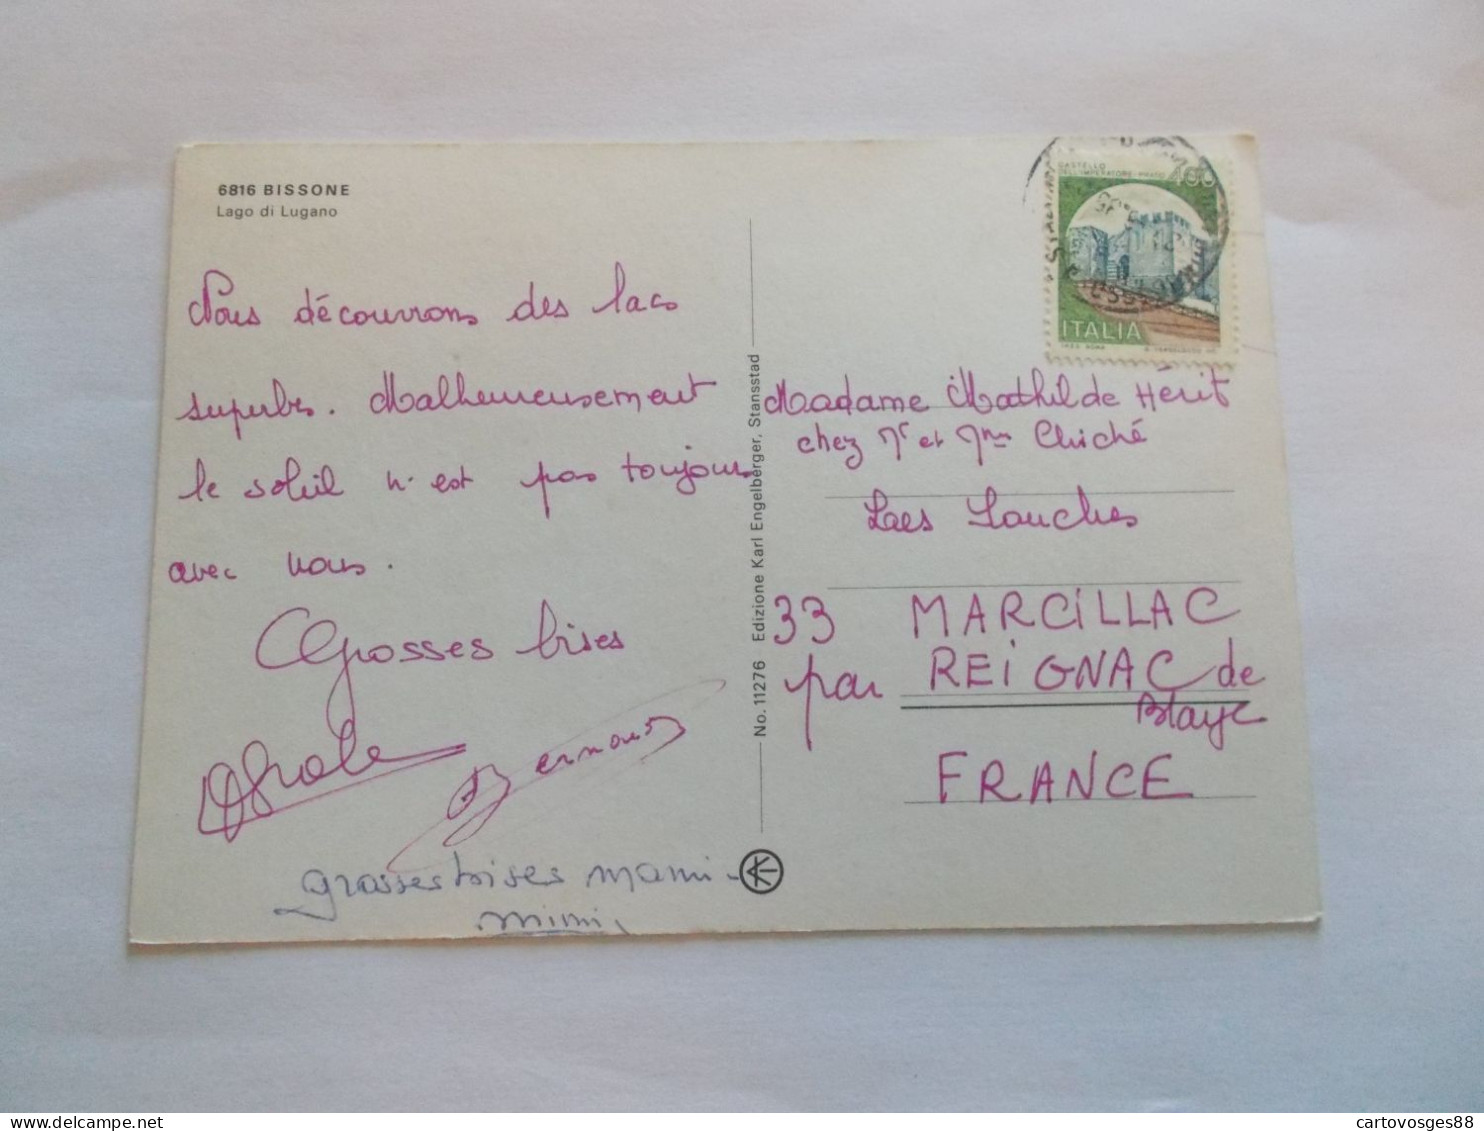 6816 BISSONE
Lago di Lugano
Nous découvrons des lacs
superbes. Malheureusement
le soleil n'est pas toujours
avec nous.
Grosses bises
Bernard
grosses bises mami
mimi
No. 11276 Edizione Karl Engelberger, Stansstad
CASTELLO
DELL'IMPERATORE - PRATO
400
ITALIA
Madame Mathilde Hérit
chez Mr et Mme Chiché
Les Louches
33 MARCILLAC
par REIGNAC de
Blaye
FRANCE
cartovosges88